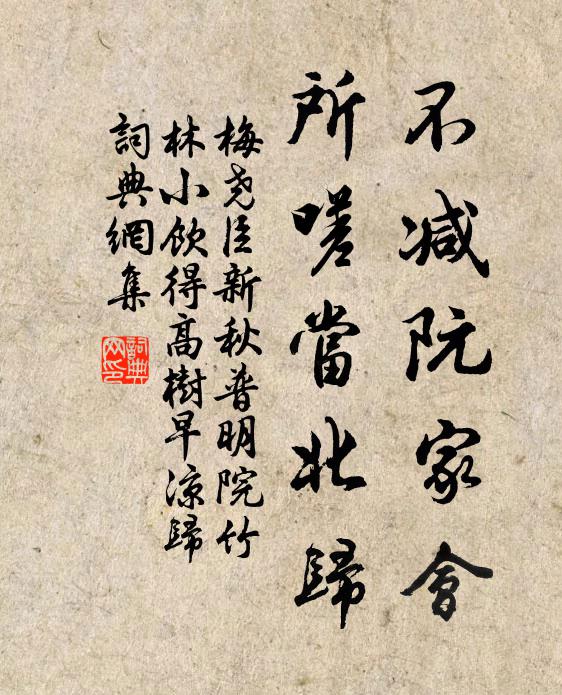 不减阮家會
所嗟當北歸
梅尧臣新秋普明院竹
林小飲得高樹早涼歸
詞典網集
詞典
网印